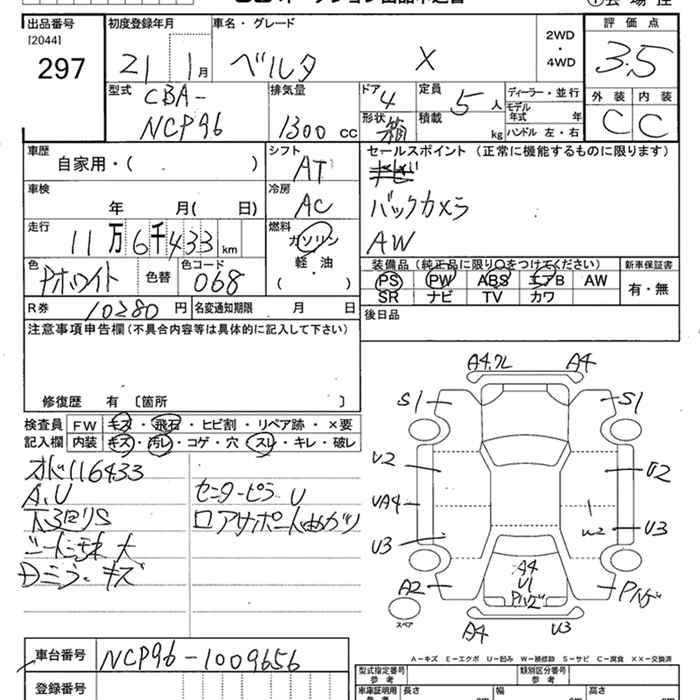 出品番号
[2044]
297
初度登録年月
21 1月
車名・グレード
ベルタ X
2WD
・
4WD
評価点
3.5
型式
CBA-
NCP96
排気量
1300 cc
ドア
4
形状
箱
定員
5人
積載
kg
ディーラー・並行
モデル
年式 年
ハンドル 左・右
外装 内装
C C
車歴
自家用・( )
シフト
AT
セールスポイント (正常に機能するものに限ります)
バックカメラ
AW
車検
年 月( 日)
冷房
AC
走行
11万6千433km
燃料
ガソリン
軽・油
( )
色
Pホワイト
色替
色コード
068
装備品(純正品に限り○をつけてください)
PS PW ABS エアB AW
SR ナビ TV カワ
新車保証書
有・無
R券
10280円
名変通知期限 月 日
後日品
注意事項申告欄(不具合内容等は具体的に記入して下さい)
修復歴 有 〔箇所 〕
検査員
記入欄
FW キズ・飛石・ヒビ割・リペア跡・×要
内装 キズ・汚レ・コゲ・穴・スレ・キレ・破レ
オド116433
A、U
下廻りS
センターピラーU
A4
A4
S1
S1
U2
U2
UA4
U3
W2
U3
A4
U1
A2
スペア
A4
U3
車台番号
NCP96-1009656
登録番号
A-キズ E-エクボ U-凹み W-補修跡 S-サビ C-腐食 XX-交換済
型式指定番号
参考
類別区分番号
参考
車庫証明用
参考
長さ
cm
幅
cm
高さ
cm